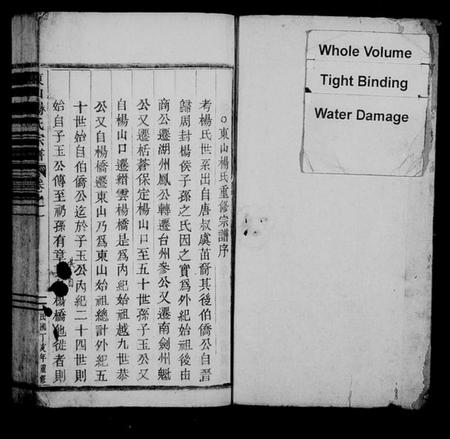 Whole Volume
Tight Binding
Water Damage
○東山楊氏重修宗譜序
考楊氏世系出自唐叔虞苗裔其後伯僑公自晋
歸周封楊侯子孫之氏因之實為外紀始祖後由
商公遷湖州鳳公轉遷台州參公又遷南劍州魁
公又遷栝蒼保定楊山口至五十世孫子玉公又
自楊山口遷縉雲楊橋是為內紀始祖越九世恭
公又自楊橋遷東山乃為東山始祖總計外紀五
十世始自伯僑公迄於子玉公內紀二十四世則
始自子玉公傳至礽孫有章楊橋也徙者則
民國丁亥年重修